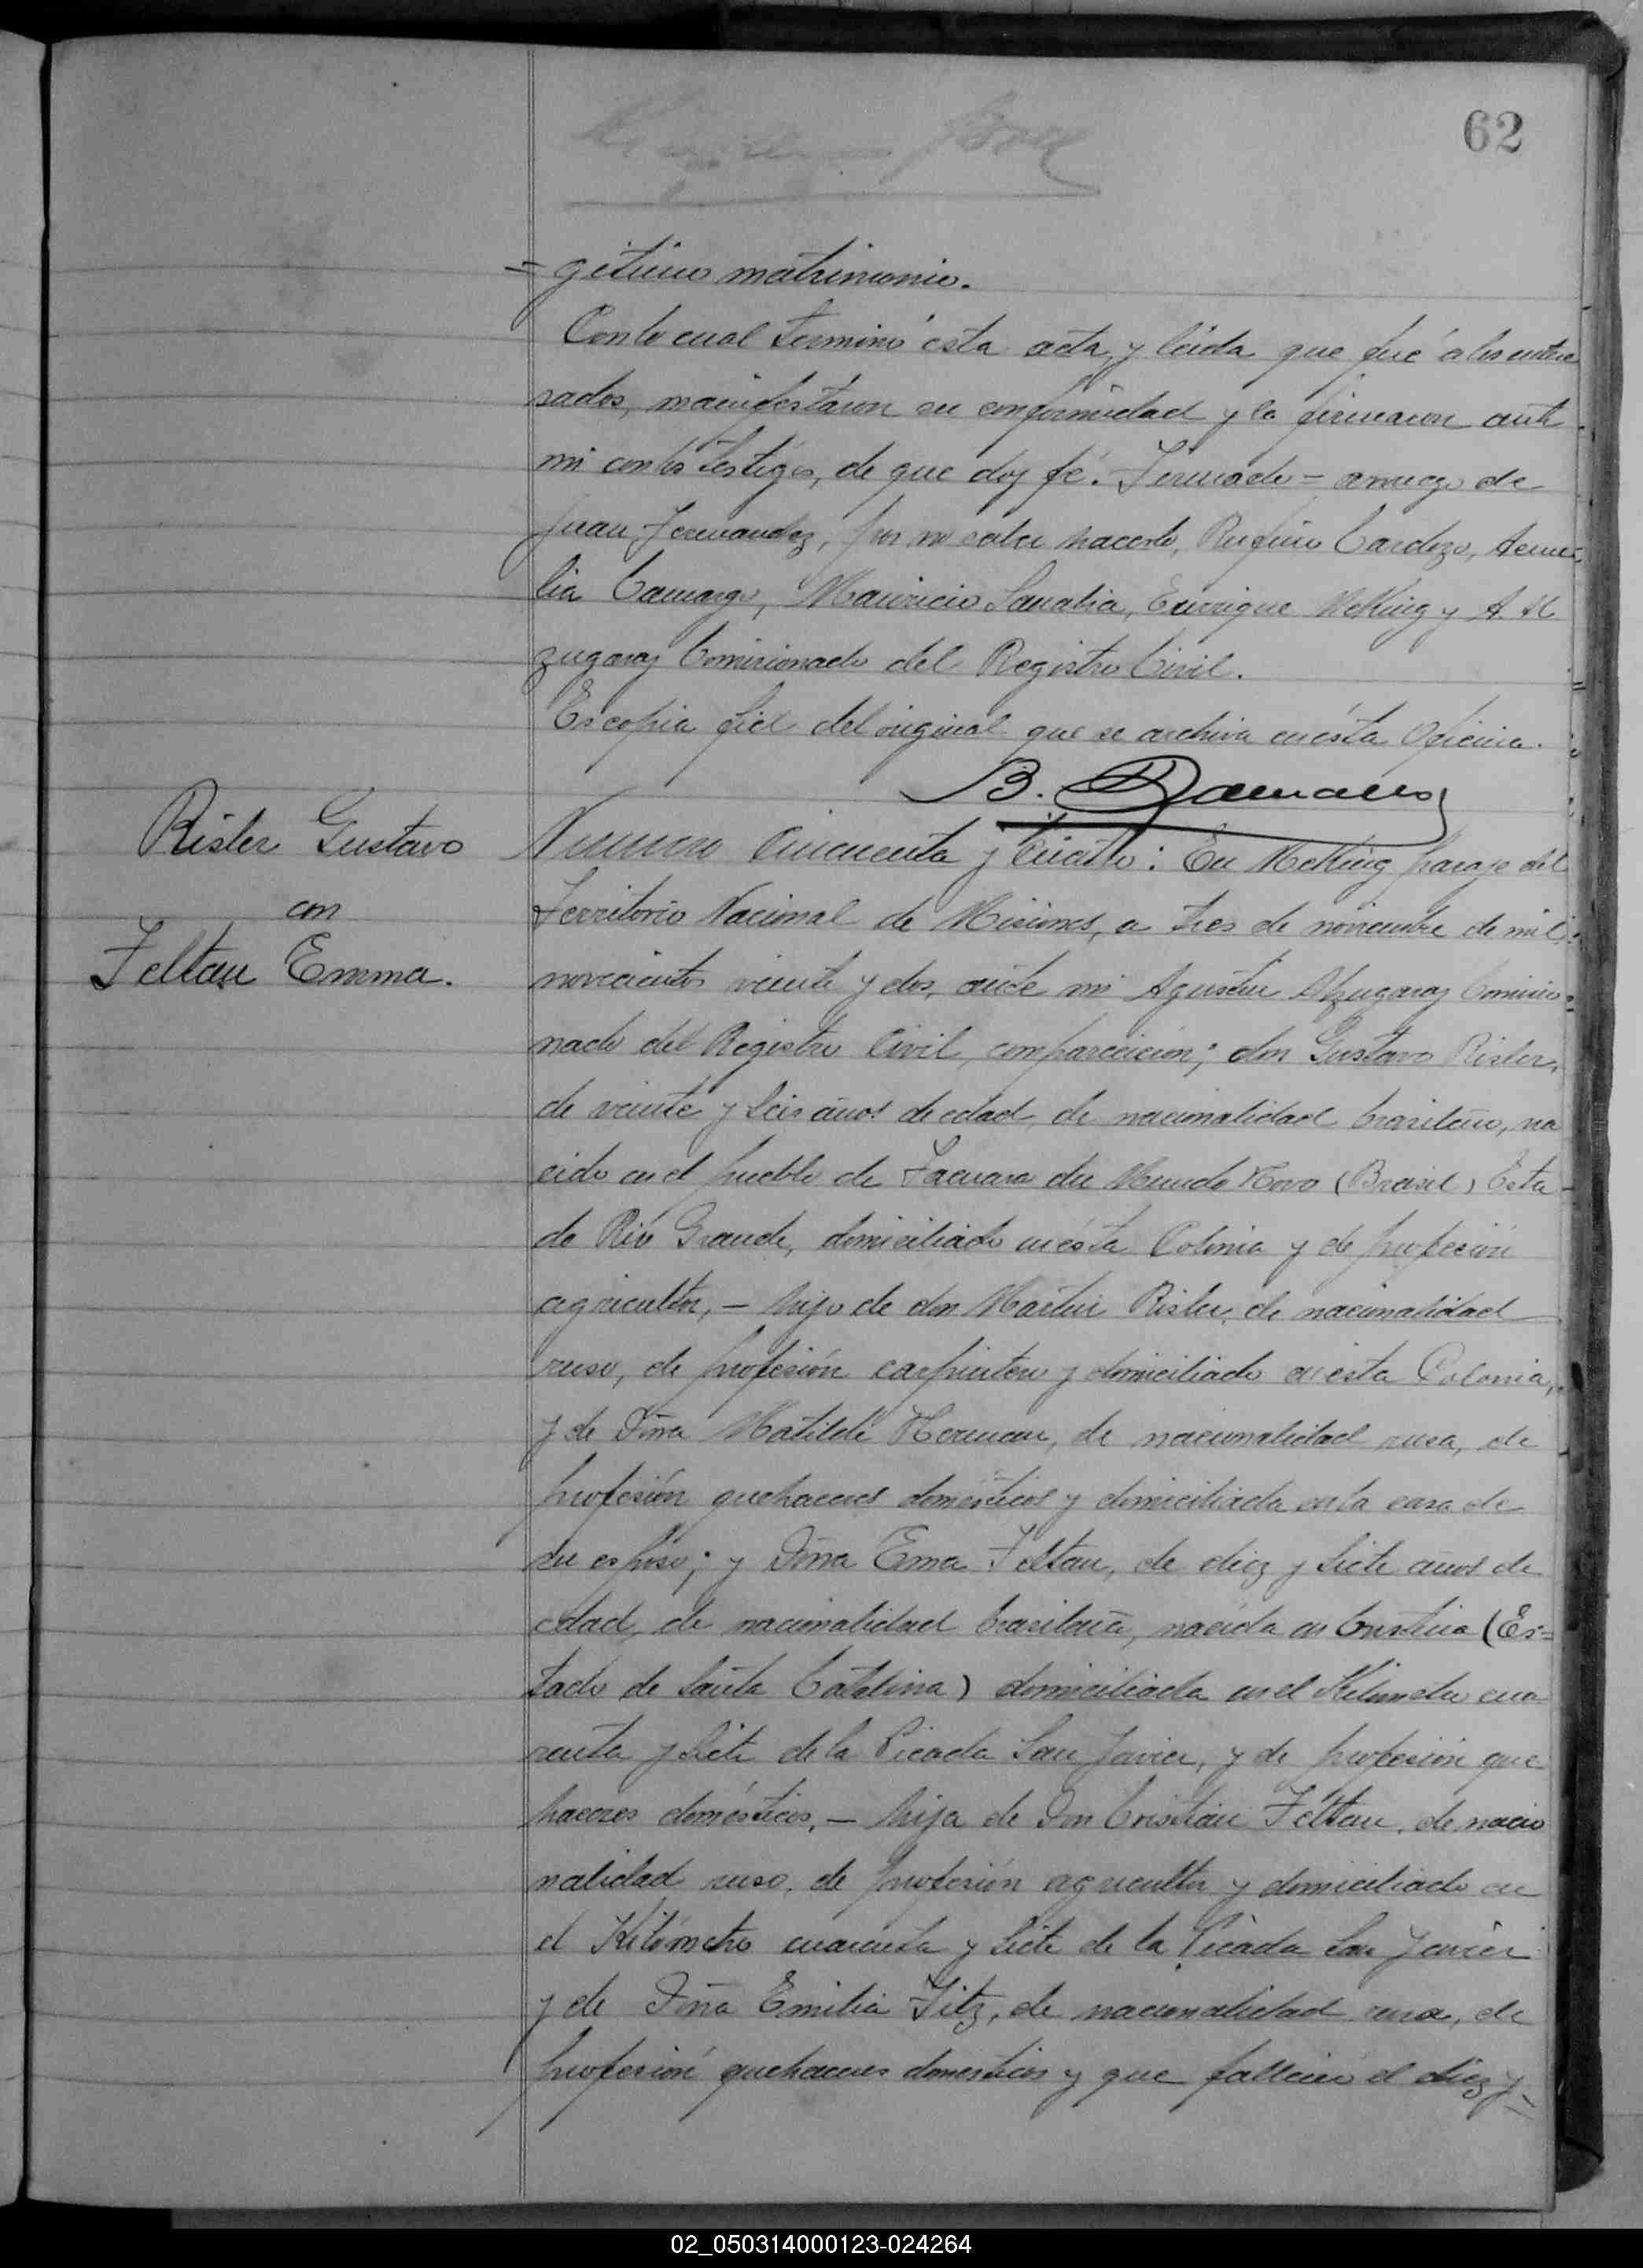 62
= gitimo matrimonio.
Con lo cual terminó ésta acta, y leída que fué a los intere
sados, manifestaron su conformidad y la firmaron ante
mi con los testigos, de que doy fé. Firmado = a ruego de
Juan Fernandez, por no saber hacerlo, Rufino Cardozo,
lia Camargo, Mauricio Sanabia, Enrique McKing y A. Al
zugaray Comisionado del Registro Civil.
Es copia fiel del original que se archiva en ésta Oficina.
B.
Rister Gustavo
con
Feltau Emma.
Numero Cincuenta y Cuatro: En McKing paraje del
Territorio Nacional de Misiones, a tres de noviembre de mil
novecientos veinte y dos, ante mi Agustin Alzugaray Comisio=
nado del Registro Civil, comparecieron; don Gustavo Rister,
de veinte y seis años de edad, de nacionalidad brasilero, na
cido en el pueblo de Tacuara du Mundo Novo (Brasil) Esta
do Rio Grande, domiciliado en ésta Colonia y de profesión
agricultor, — hijo de don Martin Rister, de nacionalidad
ruso, de profesión carpintero y domiciliado en ésta Colonia,
y de Doña Matilde Herman, de nacionalidad rusa, de
profesión quehaceres domésticos y domiciliada en la casa de
su esposo; y Doña Ema Feltau, de diez y siete años de
edad, de nacionalidad brasilera, nacida en (Es=
tado de Santa Catalina) domiciliada en el Kilometro cua
renta y siete de la Picada San Javier, y de profesión que
haceres domésticos, — hija de Don Cristian Feltau, de nacio
nalidad ruso, de profesión agricultor y domiciliado en
el Kilómetro cuarenta y siete de la Picada San Javier
y de Doña Emilia Fitz, de nacionalidad rusa, de
profesión quehaceres domésticos y que falleció el diez y=
02_050314000123-024264